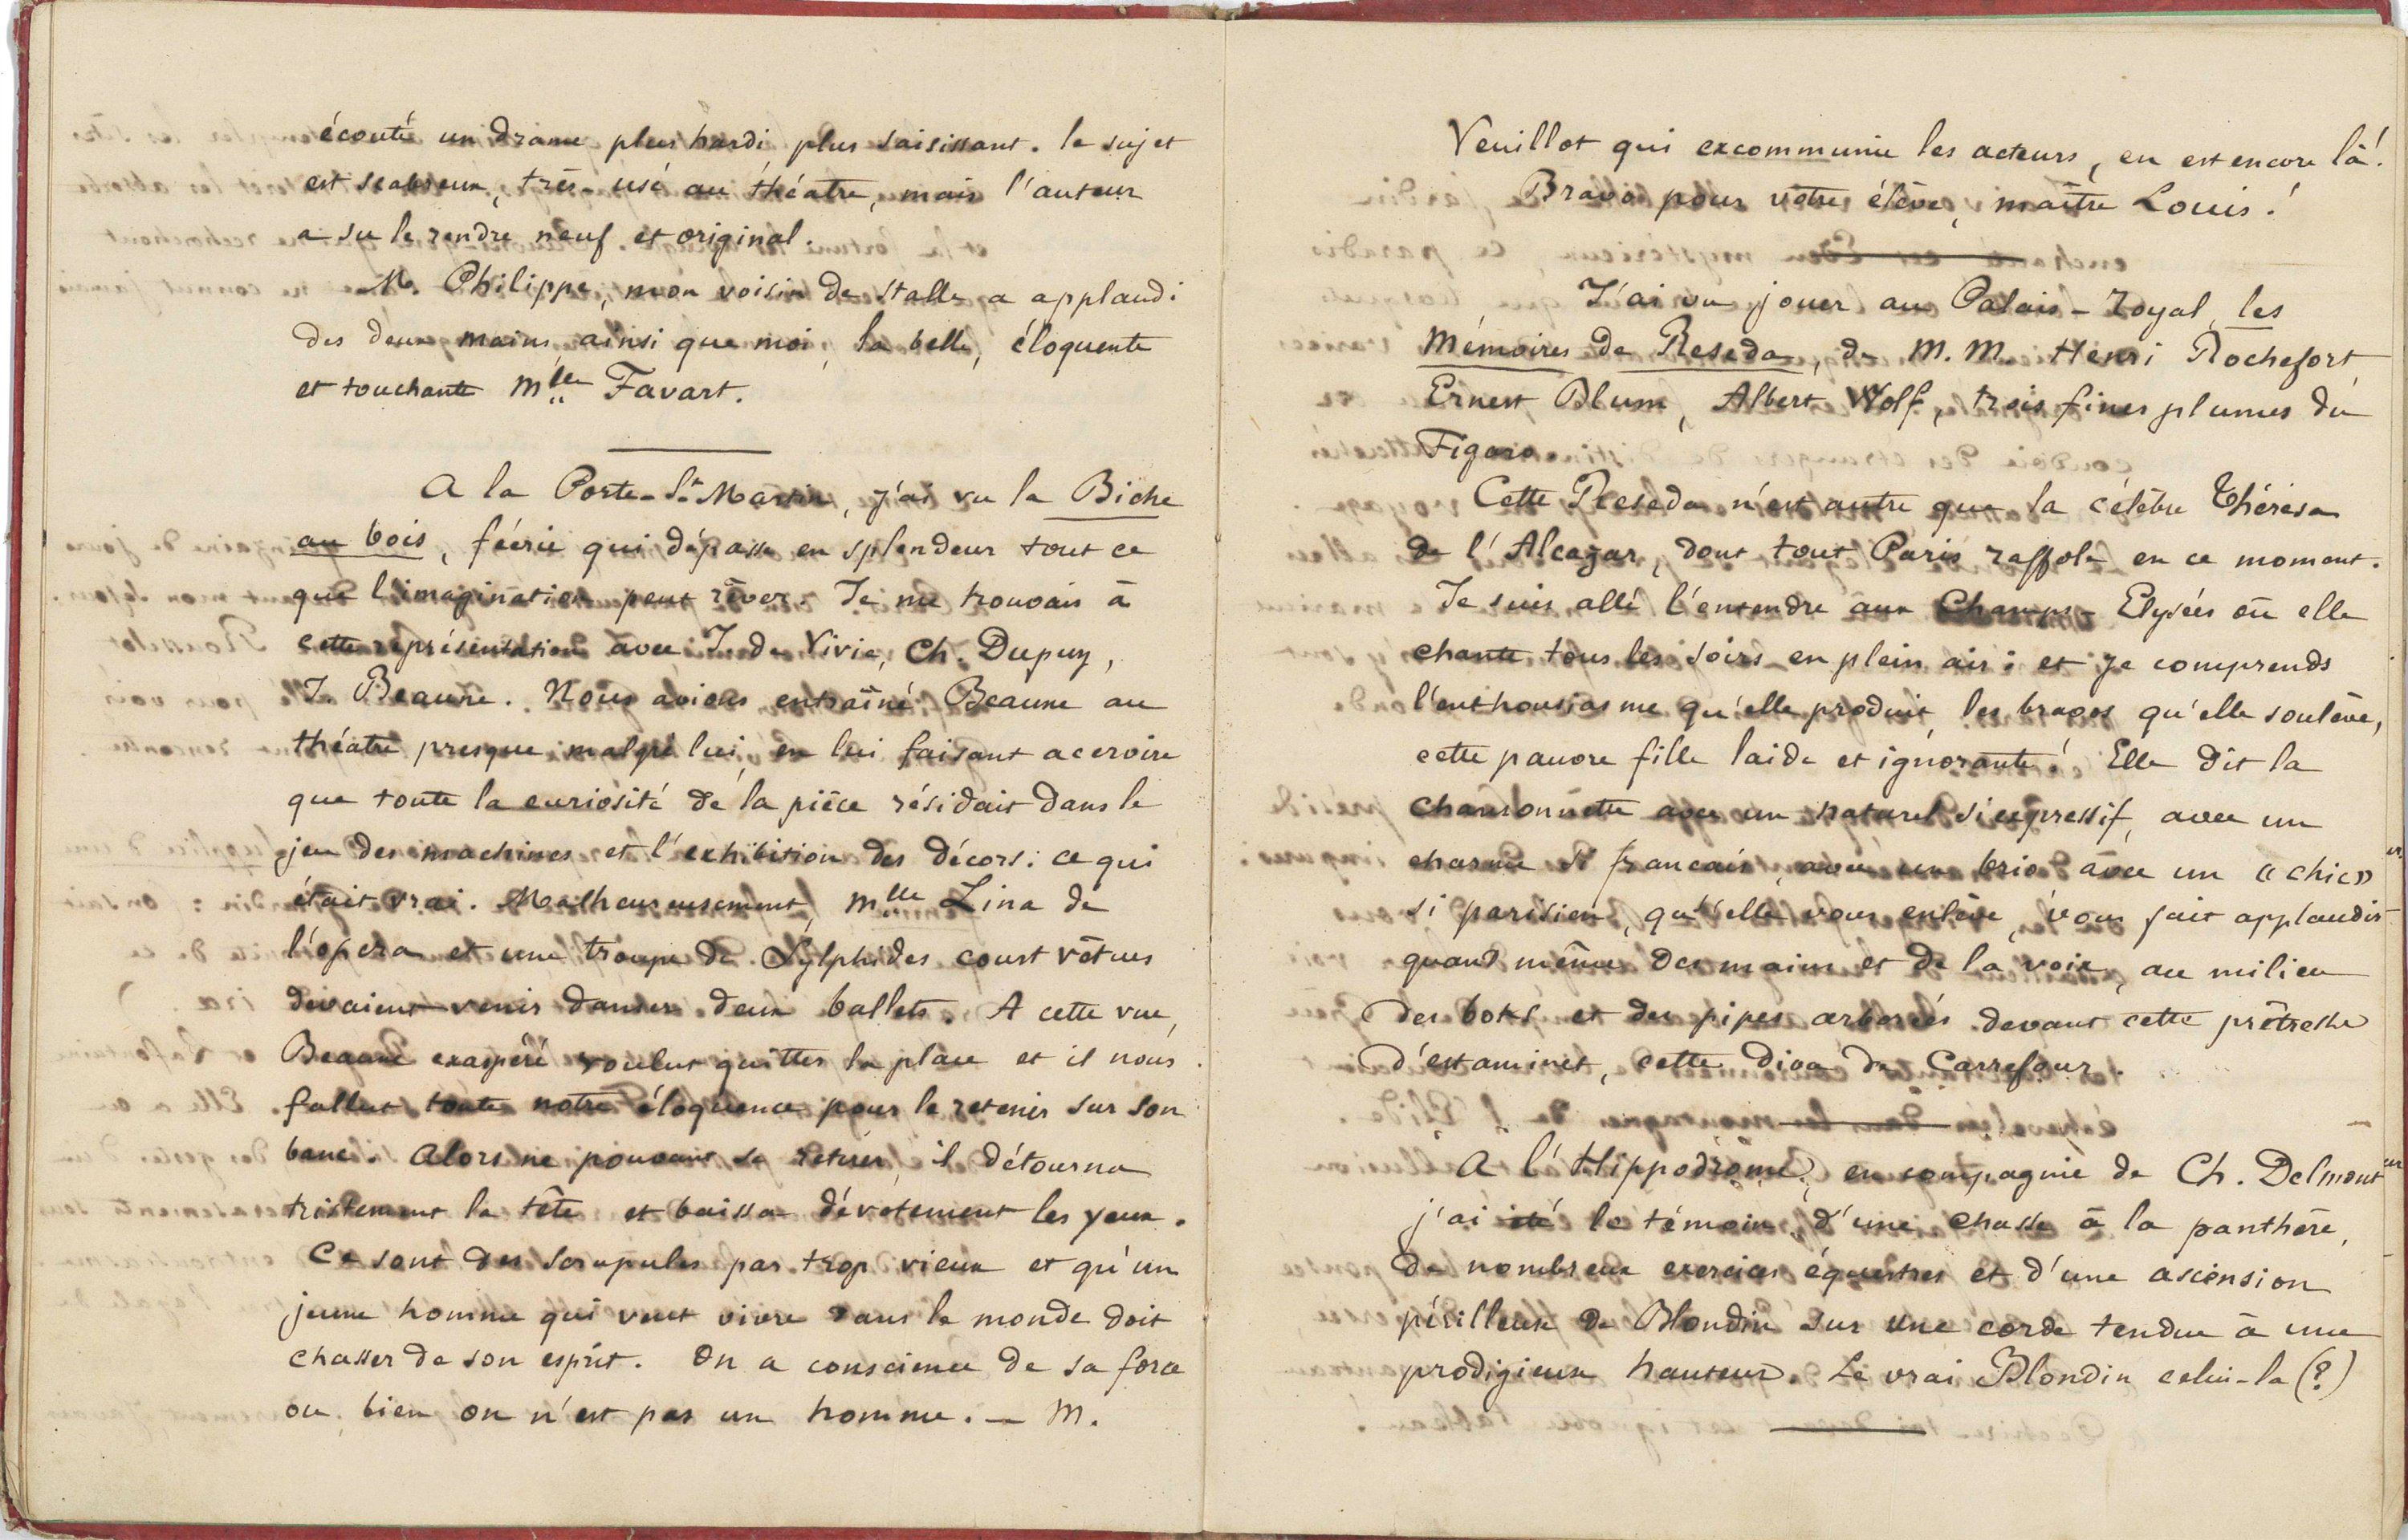 écouté un drame plus hardi plus saisissant. le sujet
est scabreux, très-usé au théatre, mais l'auteur
a su le rendre neuf et original.
M. Philippe, mon voisin de stalle a applaudi
des deux mains, ainsi que moi, la belle, éloquente
et touchante Mlle Favart.
A la Porte-St Martin, j'ai vu la Biche
au bois, féerie qui dépasse en splendeur tout ce
que l'imagination peut rêver. Je me trouvais à
cette représentation avec J. de Vivie, Ch. Dupuy,
J. Beaune. Nous avions entraîné Beaune au
théatre presque malgré lui, en lui faisant accroire
que toute la curiosité de la pièce résidait dans le
jeu des machines et l'exhibition des décors: ce qui
était vrai. Malheureusement, Mlle Lina de
l'opera et une troupe de Sylphides court vêtues
devaient venir danser deux ballets. A cette vue,
Beaune exaspéré voulut quitter la place et il nous
fallut toute notre éloquence pour le retenir sur son
banc. Alors ne pouvant se retirer, il détourna
tristement la tête et baissa dévotement les yeux.
Ce sont des scrupules par trop vieux et qu'un
jeune homme qui veut vivre dans le monde doit
chasser de son esprit. On a conscience de sa force
ou bien on n'est pas un homme. — M.
Veuillot qui excommunie les acteurs, en est encore là!
Bravo pour votre élève, maître Louis!
J'ai vu jouer au Palais-Royal, les
Mémoires de Reseda, de M.M. Henri Rochefort,
Ernest Blum, Albert Wolf, trois fines plumes du
Figaro
Cette Reseda n'est autre que la célèbre Thérésa
de l'Alcazar, dont tout Paris raffole en ce moment.
Je suis allé l'entendre aux Champs-Elysées où elle
chante tous les soirs en plein air: et je comprends
l'enthousiasme qu'elle produit, les bravos qu'elle soulève,
cette pauvre fille laide et ignorante! Elle dit la
chansonnette avec un naturel si expressif, avec un
charme si francais, avec un brio avec un «chic»
si parisien, qu'elle vous enlève, vous fait applaudir
quand même des mains et de la voix, au milieu
des boks et des pipes arborées devant cette prêtresse
d'estaminet, cette diva de Carrefour.
A l'Hippodrôme, en compagnie de Ch. Delmont
j'ai été le témoin, d'une chasse à la panthère,
de nombreux exercices équestres et d'une ascension
périlleuse de Blondin sur une corde tendue à une
prodigieuse hauteur. Le vrai Blondin celui-la (?)